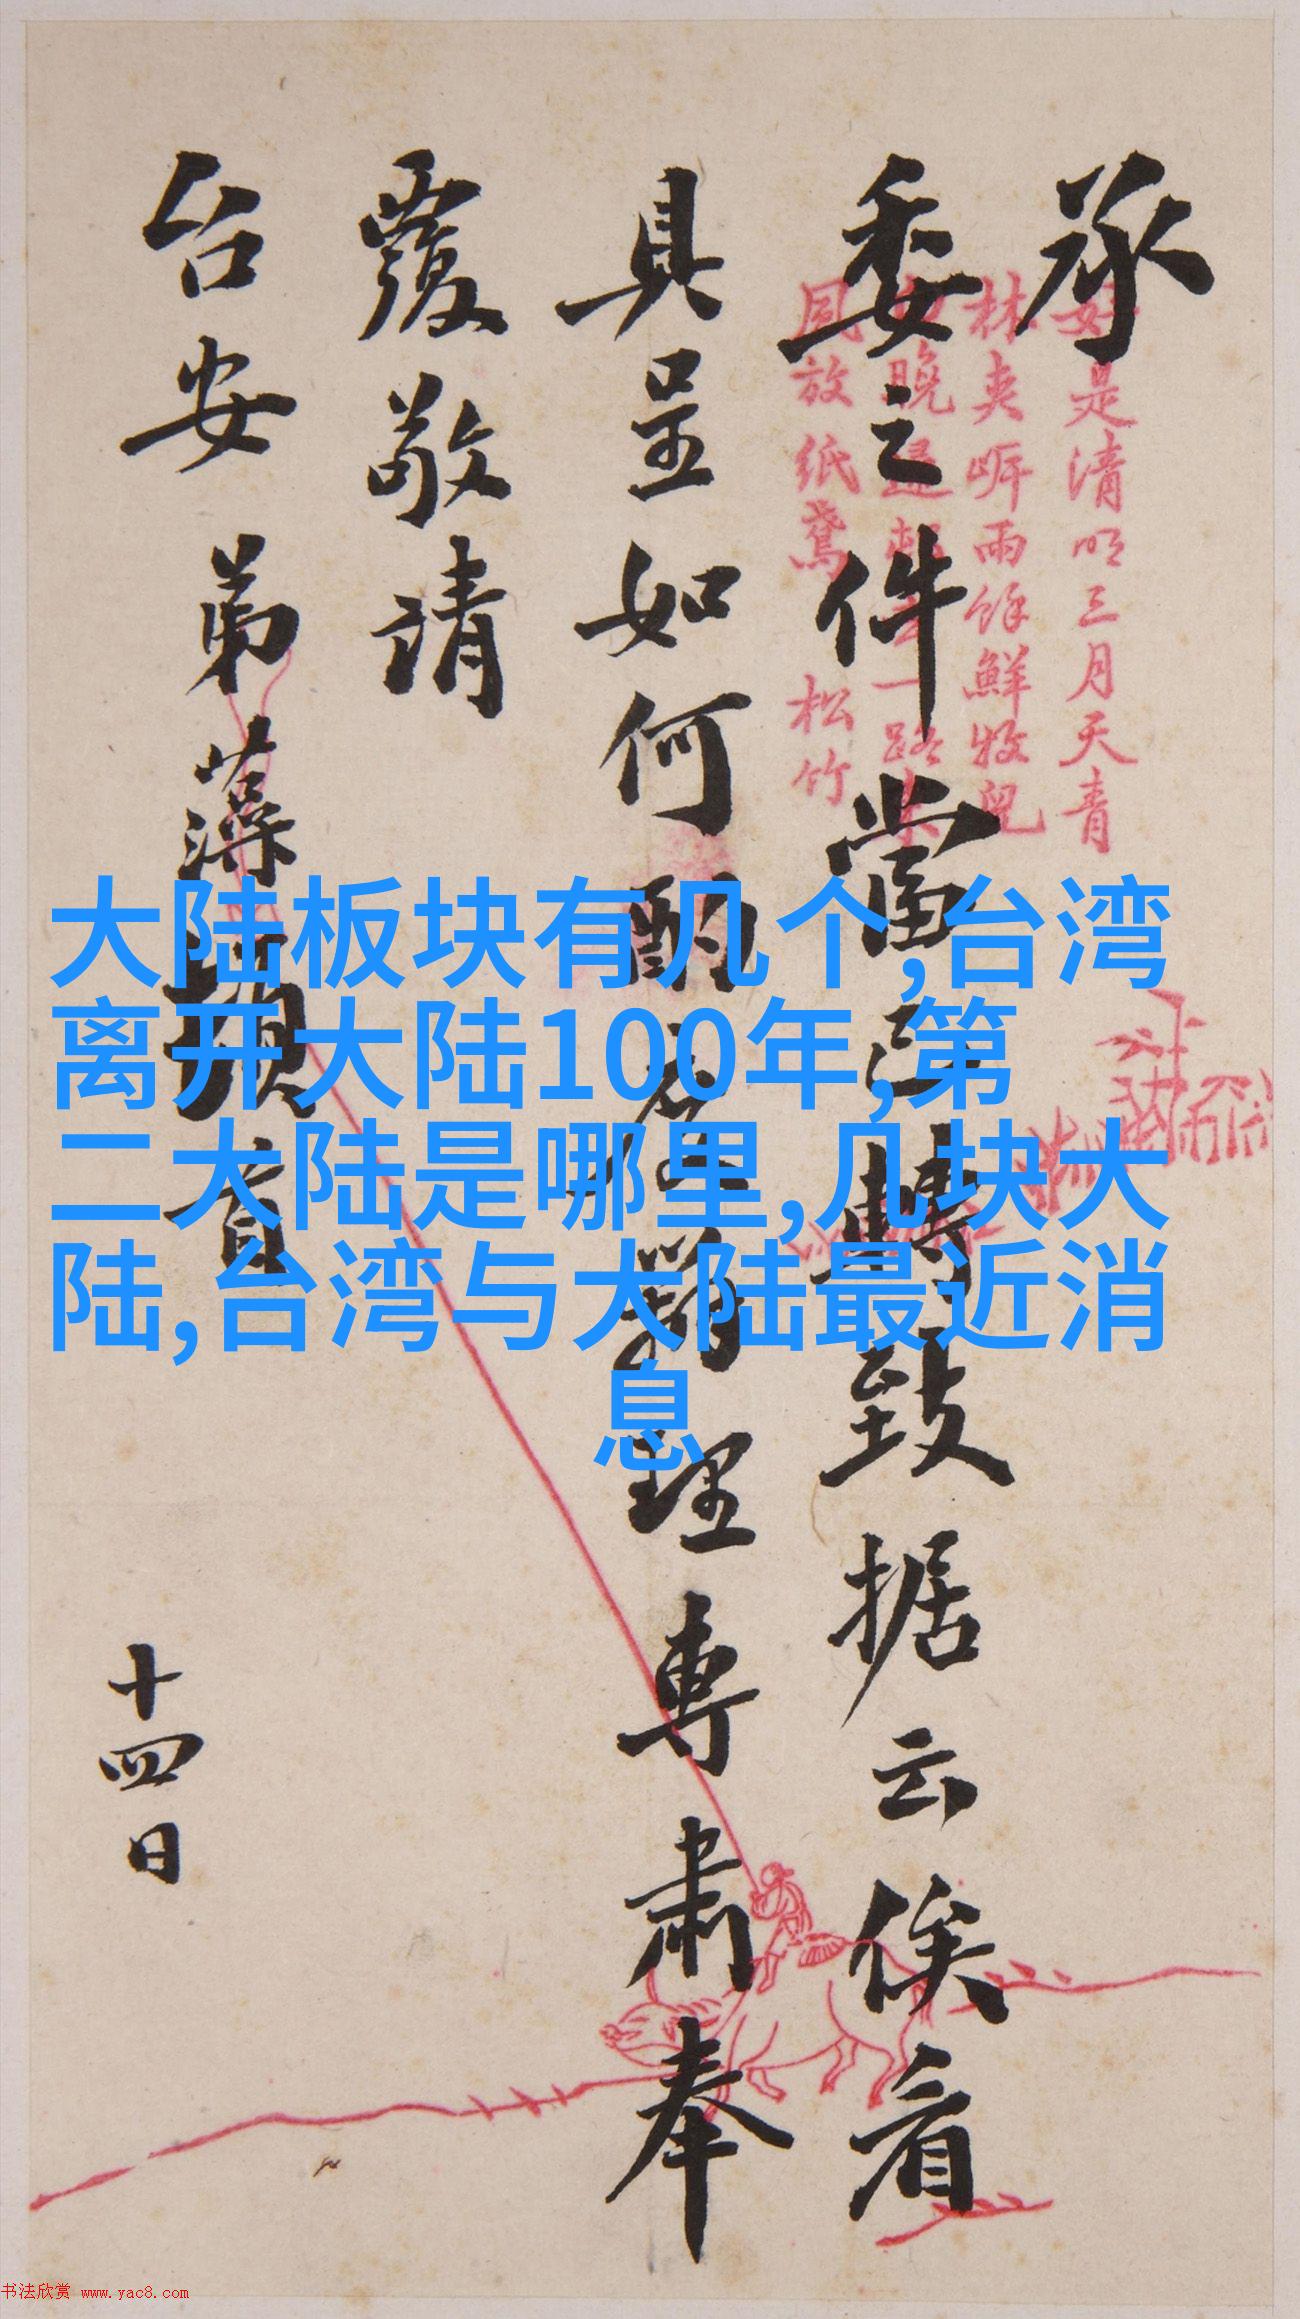 承
委之件當已轉致據云俟看
具呈如何酌君辦理專肅奉
覆敬請
台安 弟藻頓首
十四日
好是清明三月天青
林夾岸雨餘鮮牧兒
晚一路
同放紙鳶 松竹
大陆板块有几个,台湾
离开大陆100年,第
二大陆是哪里,几块大
陆,台湾与大陆最近消
息
书法欣赏 www.yac8.com